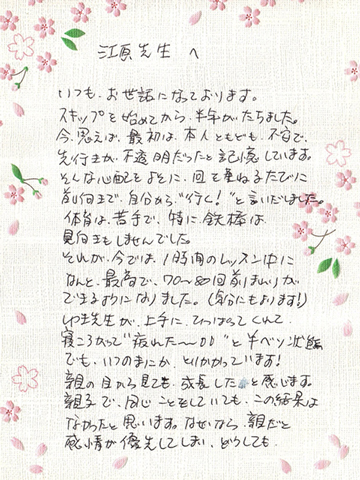 江原先生へ
いつも、お世話になっております。
スキップを始めてから、半年がたちました。
今、思えば、最初は、本人ともども、不安で、
先行きが、不透明だったと記憶しています。
そんな心配をよそに、回を重ねるたびに
前日まで、自分から、“行く!”と言いだしました。
体育は、苦手で、特に、鉄棒は
見向きもしませんでした。
それが、今では、1時間のレッスン中に
なんと、最高で、70〜80回前まわりが
できるようになりました。(自分にもおります!)
ゆき先生が、上手に、ひっぱってくれて、
寝ころがって“疲れた〜〜"と半ベソ状態
でも、いつのまにか、とりかかっています!
親の目から見ても、成長したと感じます。
親子で、同じことをしていても、この結果は
なかったと思います。なぜなら、親だと
感情が優先してしまい、どうしても、